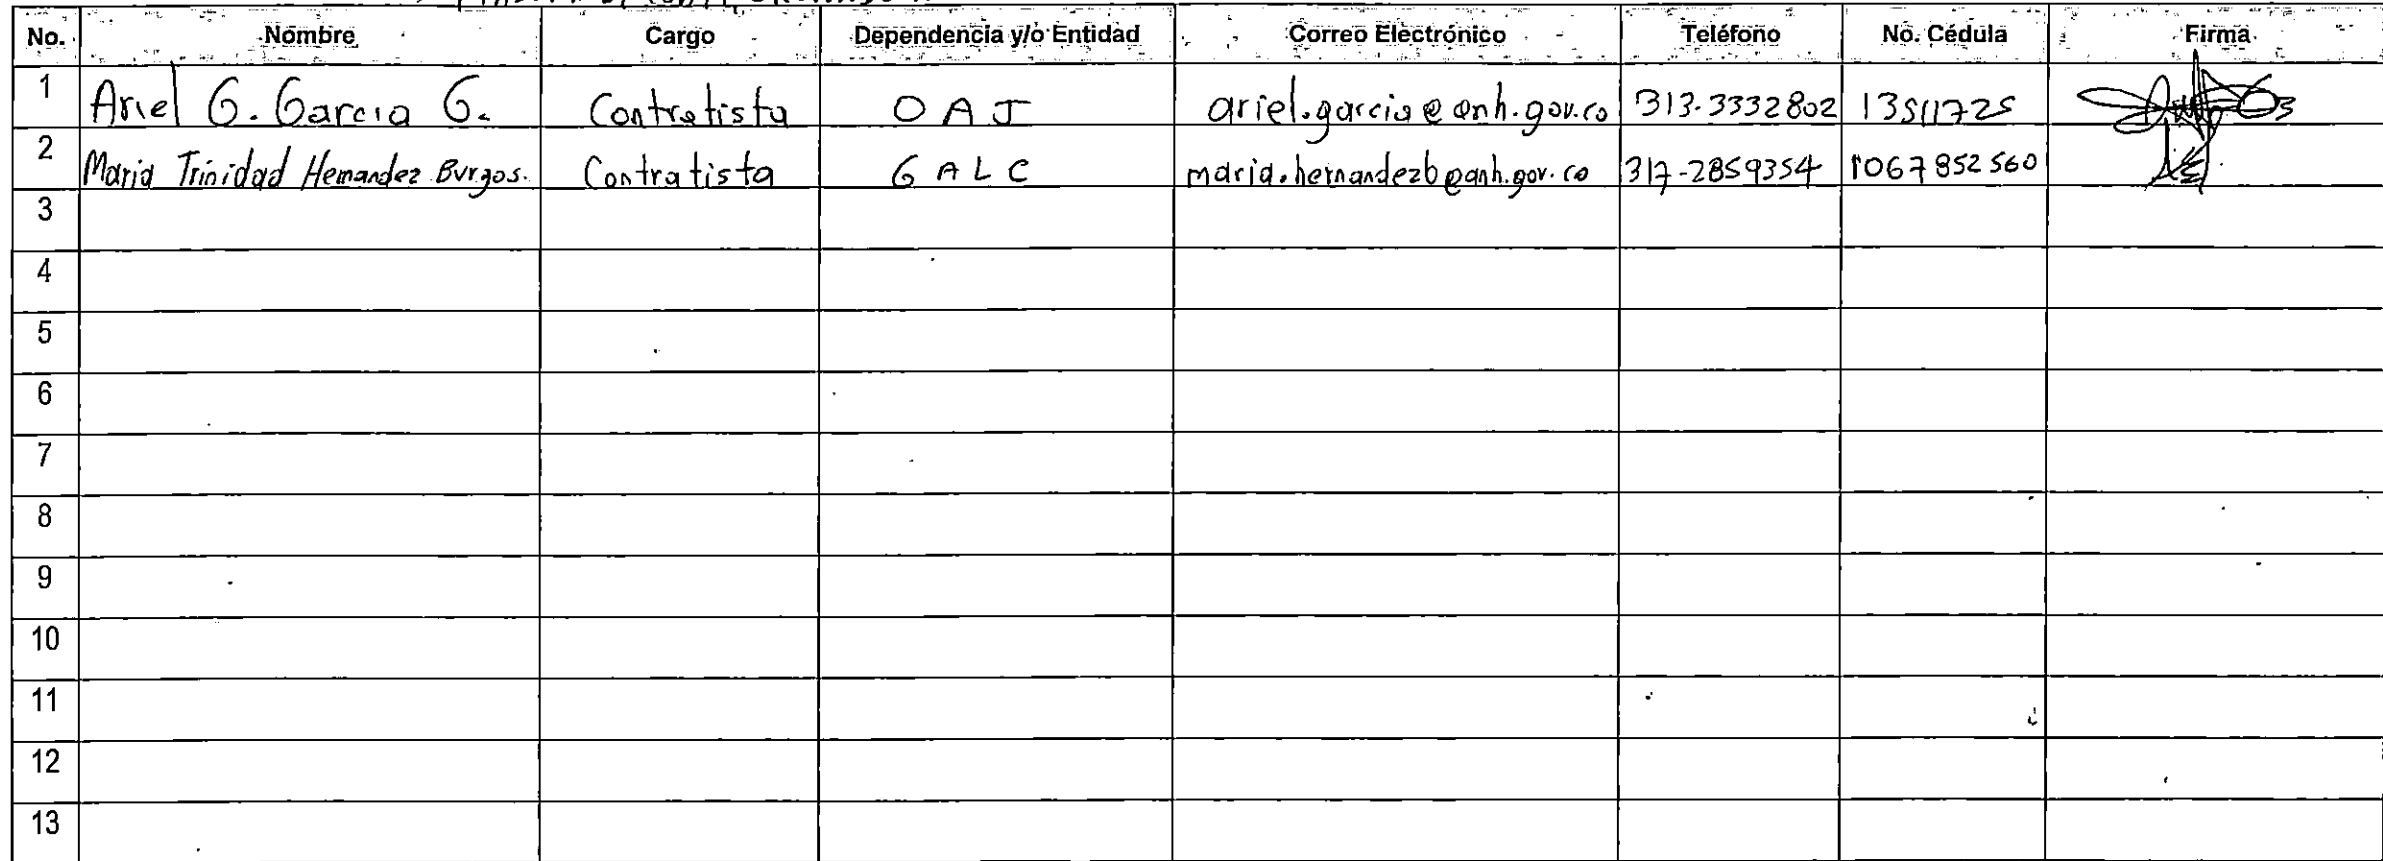 No. Nombre Cargo Dependencia y/o Entidad Correo Electrónico Teléfono No. Cédula Firma
1 Ariel G. Garcia G. Contratista OAJ ariel.garcia@anh.gov.co 313-3332802 13511725
2 Maria Trinidad Hernandez Burgos. Contratista GALC maria.hernandezb@anh.gov.co 317-2859354 1067852560
3
4
5
6
7
8
9
10
11
12
13